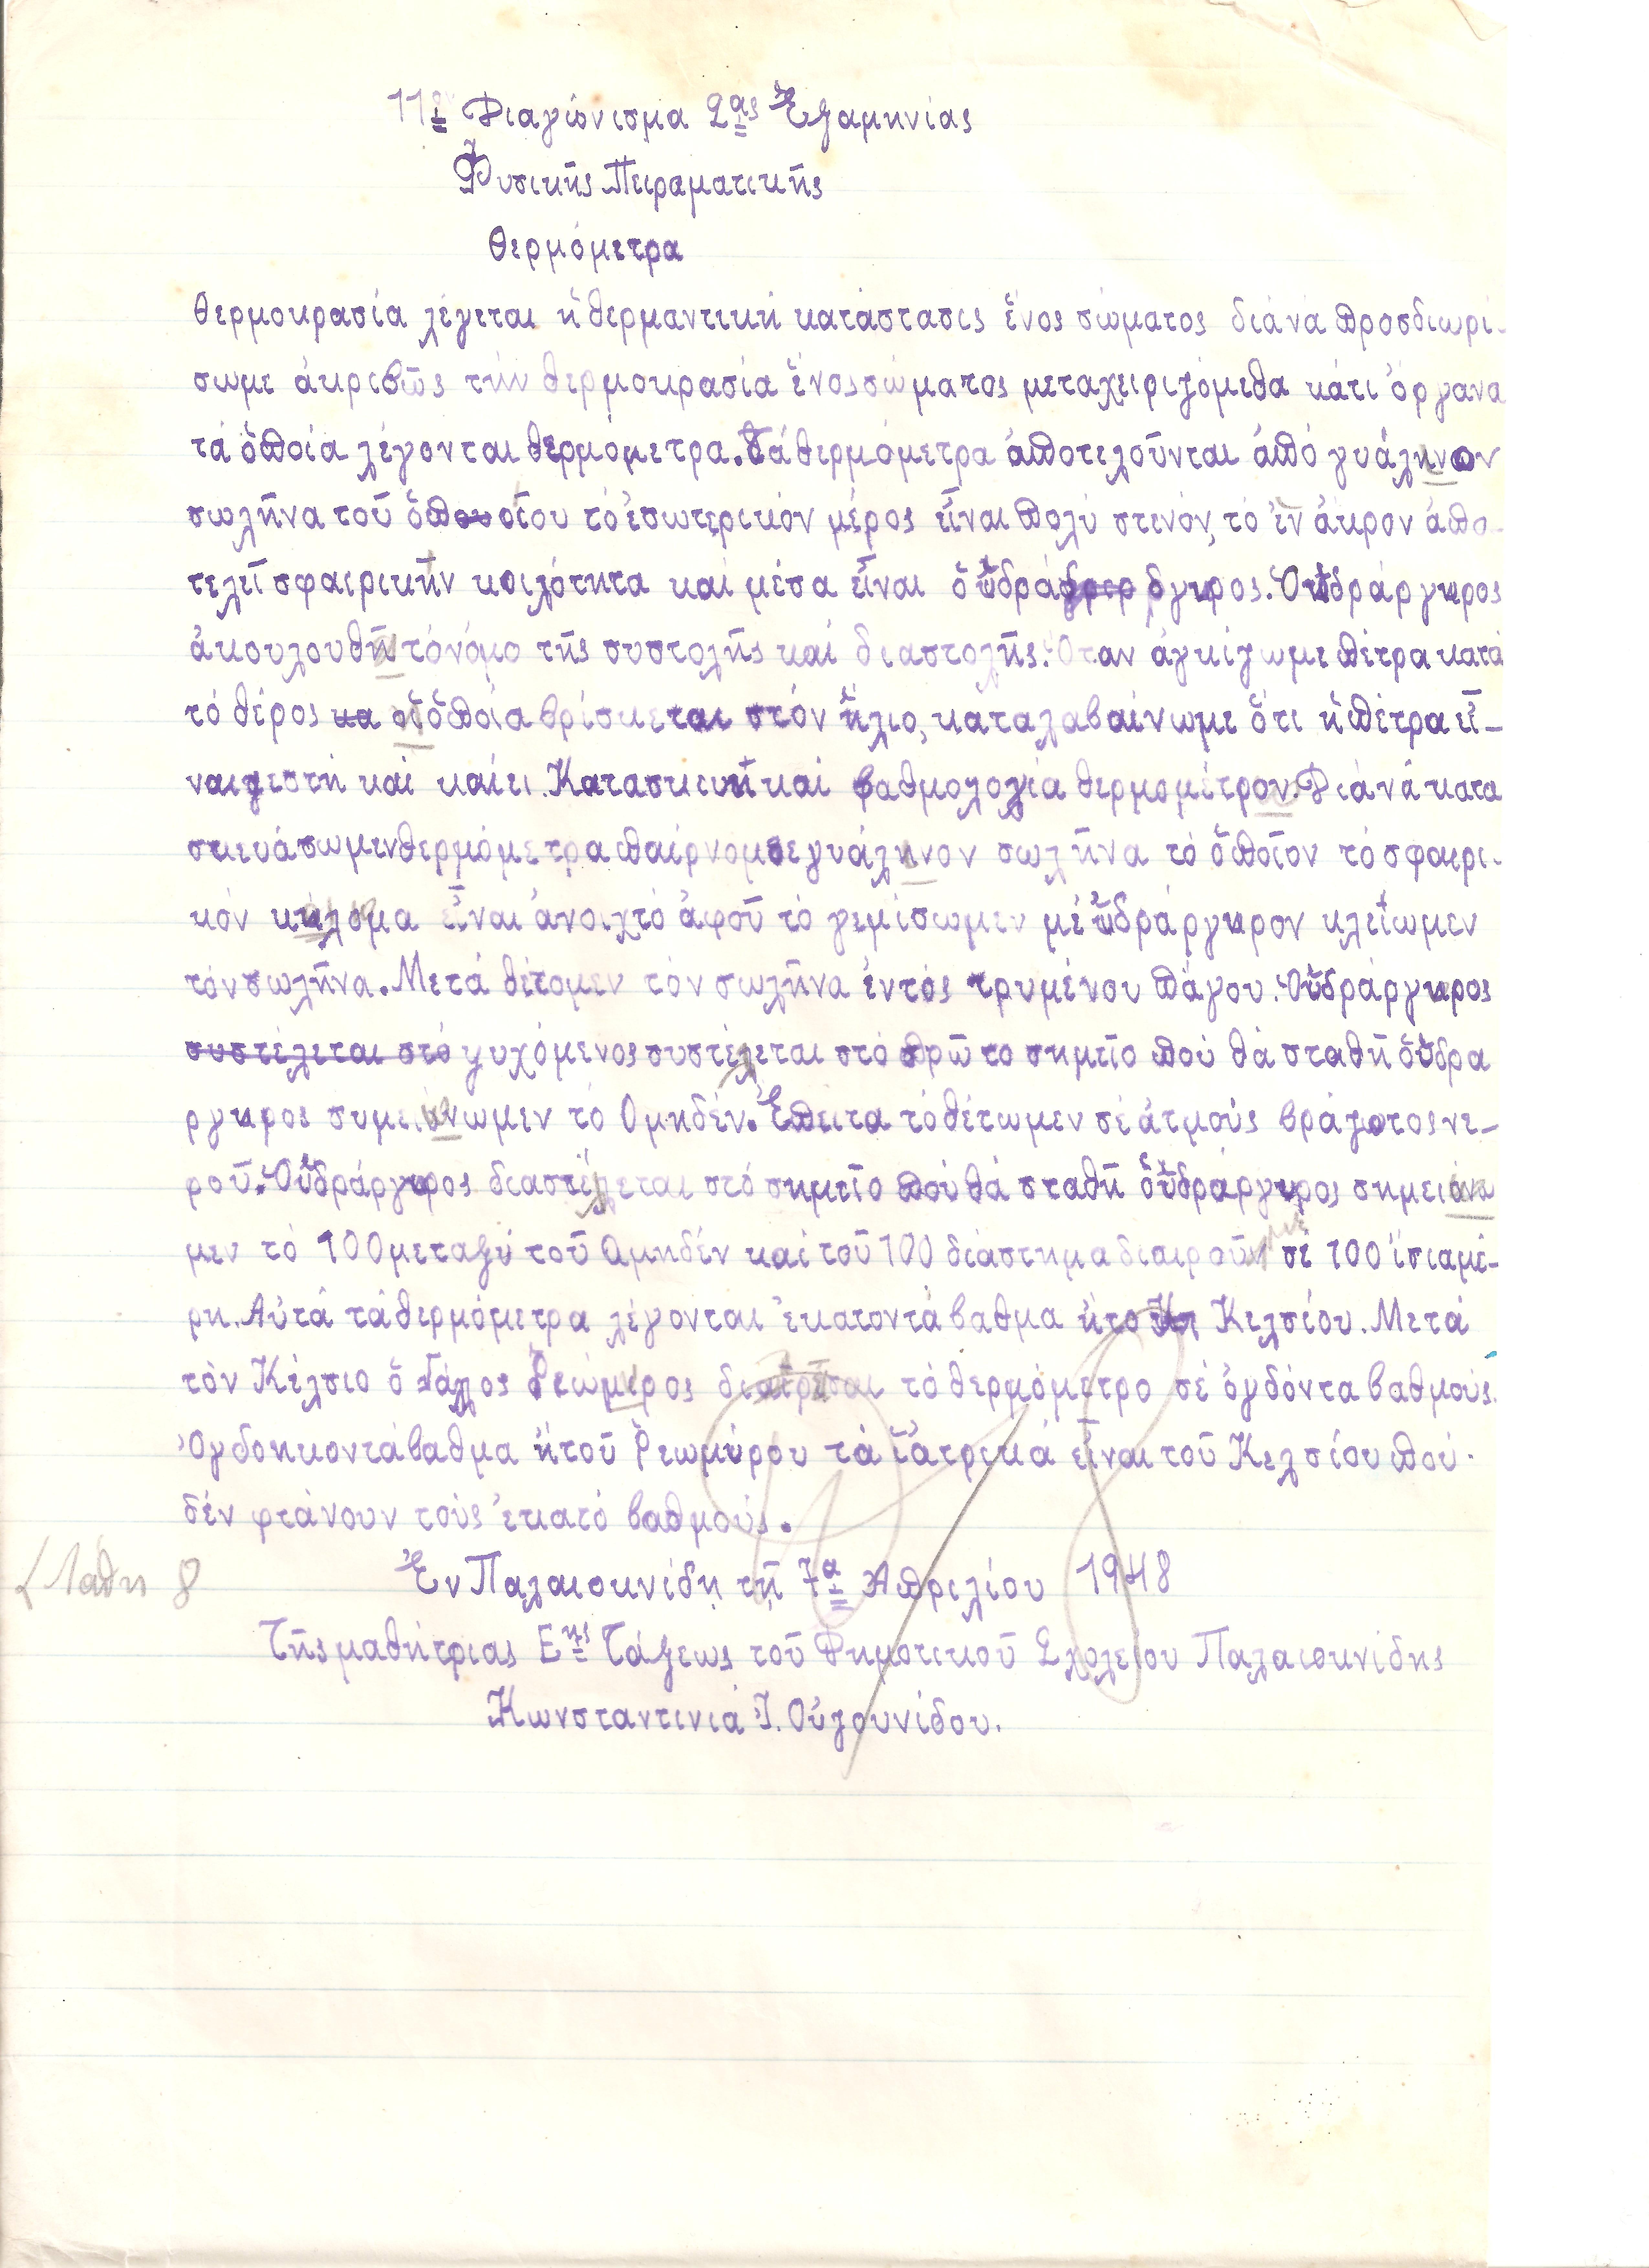 11ον Διαγώνισμα 2ας Ἑξαμηνίας
Φυσικῆς Πειραματικῆς
Θερμόμετρα
Θερμοκρασία λέγεται ἡ θερμαντική κατάστασις ἕνος σώματος διά νά προσδιωρί-
σωμε ἀκριβῶς τήν θερμοκρασία ἕνος σώματος μεταχειριζόμεθα κάτι ὄργανα
τά ὅποία λέγονται θερμόμετρα. Τά θερμόμετρα ἀποτελοῦνται ἀπό γυάληνον
σωλῆνα τοῦ ὅποίου τό ἐσωτερικόν μέρος εἶναι πολύ στενόν, τό ἕν ἄκρον ἀπο-
τελεῖ σφαιρικῆν κοιλότητα καί μέσα εἶναι ὁ ὑδράργυρος. Ὁ ὑδράργυρος
ἀκουλουθῆ τό νόμο τῆς συστολῆς καί διαστολῆς. Ὅταν ἀγκίζωμε πέτρα κατά
τό θέρος οἱ ὅποία βρίσκεται στόν ἥλιο, καταλαβαίνωμε ὅτι ἡ πέτρα εἶ-
ναι ζεστή καί καίει. Κατασκευή καί βαθμολογία θερμομέτρον. Διά νά κατα
σκευάσωμεν θερμόμετρα παίρνομε γυάληνον σωλῆνα τό ὅποῖον τό σφαιρι-
κόν εἶναι ἀνοιχτό ἀφοῦ τό γεμίσωμεν μέ ὑδράργυρον κλείωμεν
τόν σωλῆνα. Μετά θέτομεν τόν σωλῆνα ἐντός τρυμένου πάγου. Ὁ ὑδράργυρος
συστέλεται στό ψυχόμενος συστέλεται στό πρῶτο σημεῖο πού θά σταθῆ ὁ ὑδρα
ργυρος συμειώνωμεν τό 0 μηδέν. Ἔπειτα τό θέτωμεν σέ ἀτμούς βράζοτος νε-
ροῦ. Ὁ ὑδράργυρος διαστέλεται στό σημεῖο πού θά σταθῆ ὁ ὑδράργυρος σημειόνω
μεν τό 100 μεταξύ τοῦ 0 μηδέν καί τοῦ 100 διάστημα διαιροῦμε σέ 100 ἴσια μέ-
ρη. Αὐτά τά θερμόμετρα λέγονται ἑκατοντάβαθμα ἤ το Κελσίου. Μετά
τὸν Κέλσιο ὁ Γάλος Ῥεώμυρος τό θερμόμετρο σέ ὀγδόντα βαθμούς.
Ὀγδοηκοντάβαθμα ἤ τοῦ Ῥεωμύρου τά ἰατρικά εἶναι τοῦ Κελσίου πού
δέν φτάνουν τούς ἑκατό βαθμούς.
Λάθη 8
Ἐν Παλαιοκνίδη τῇ 7ᾳ Ἀπριλίου 1948
Τῆς μαθήτριας Εης Τάξεως τοῦ Δημοτικοῦ Σχολείου Παλαιοκνίδης
Κωνσταντινιά Ἰ. Οὐζουνίδου.